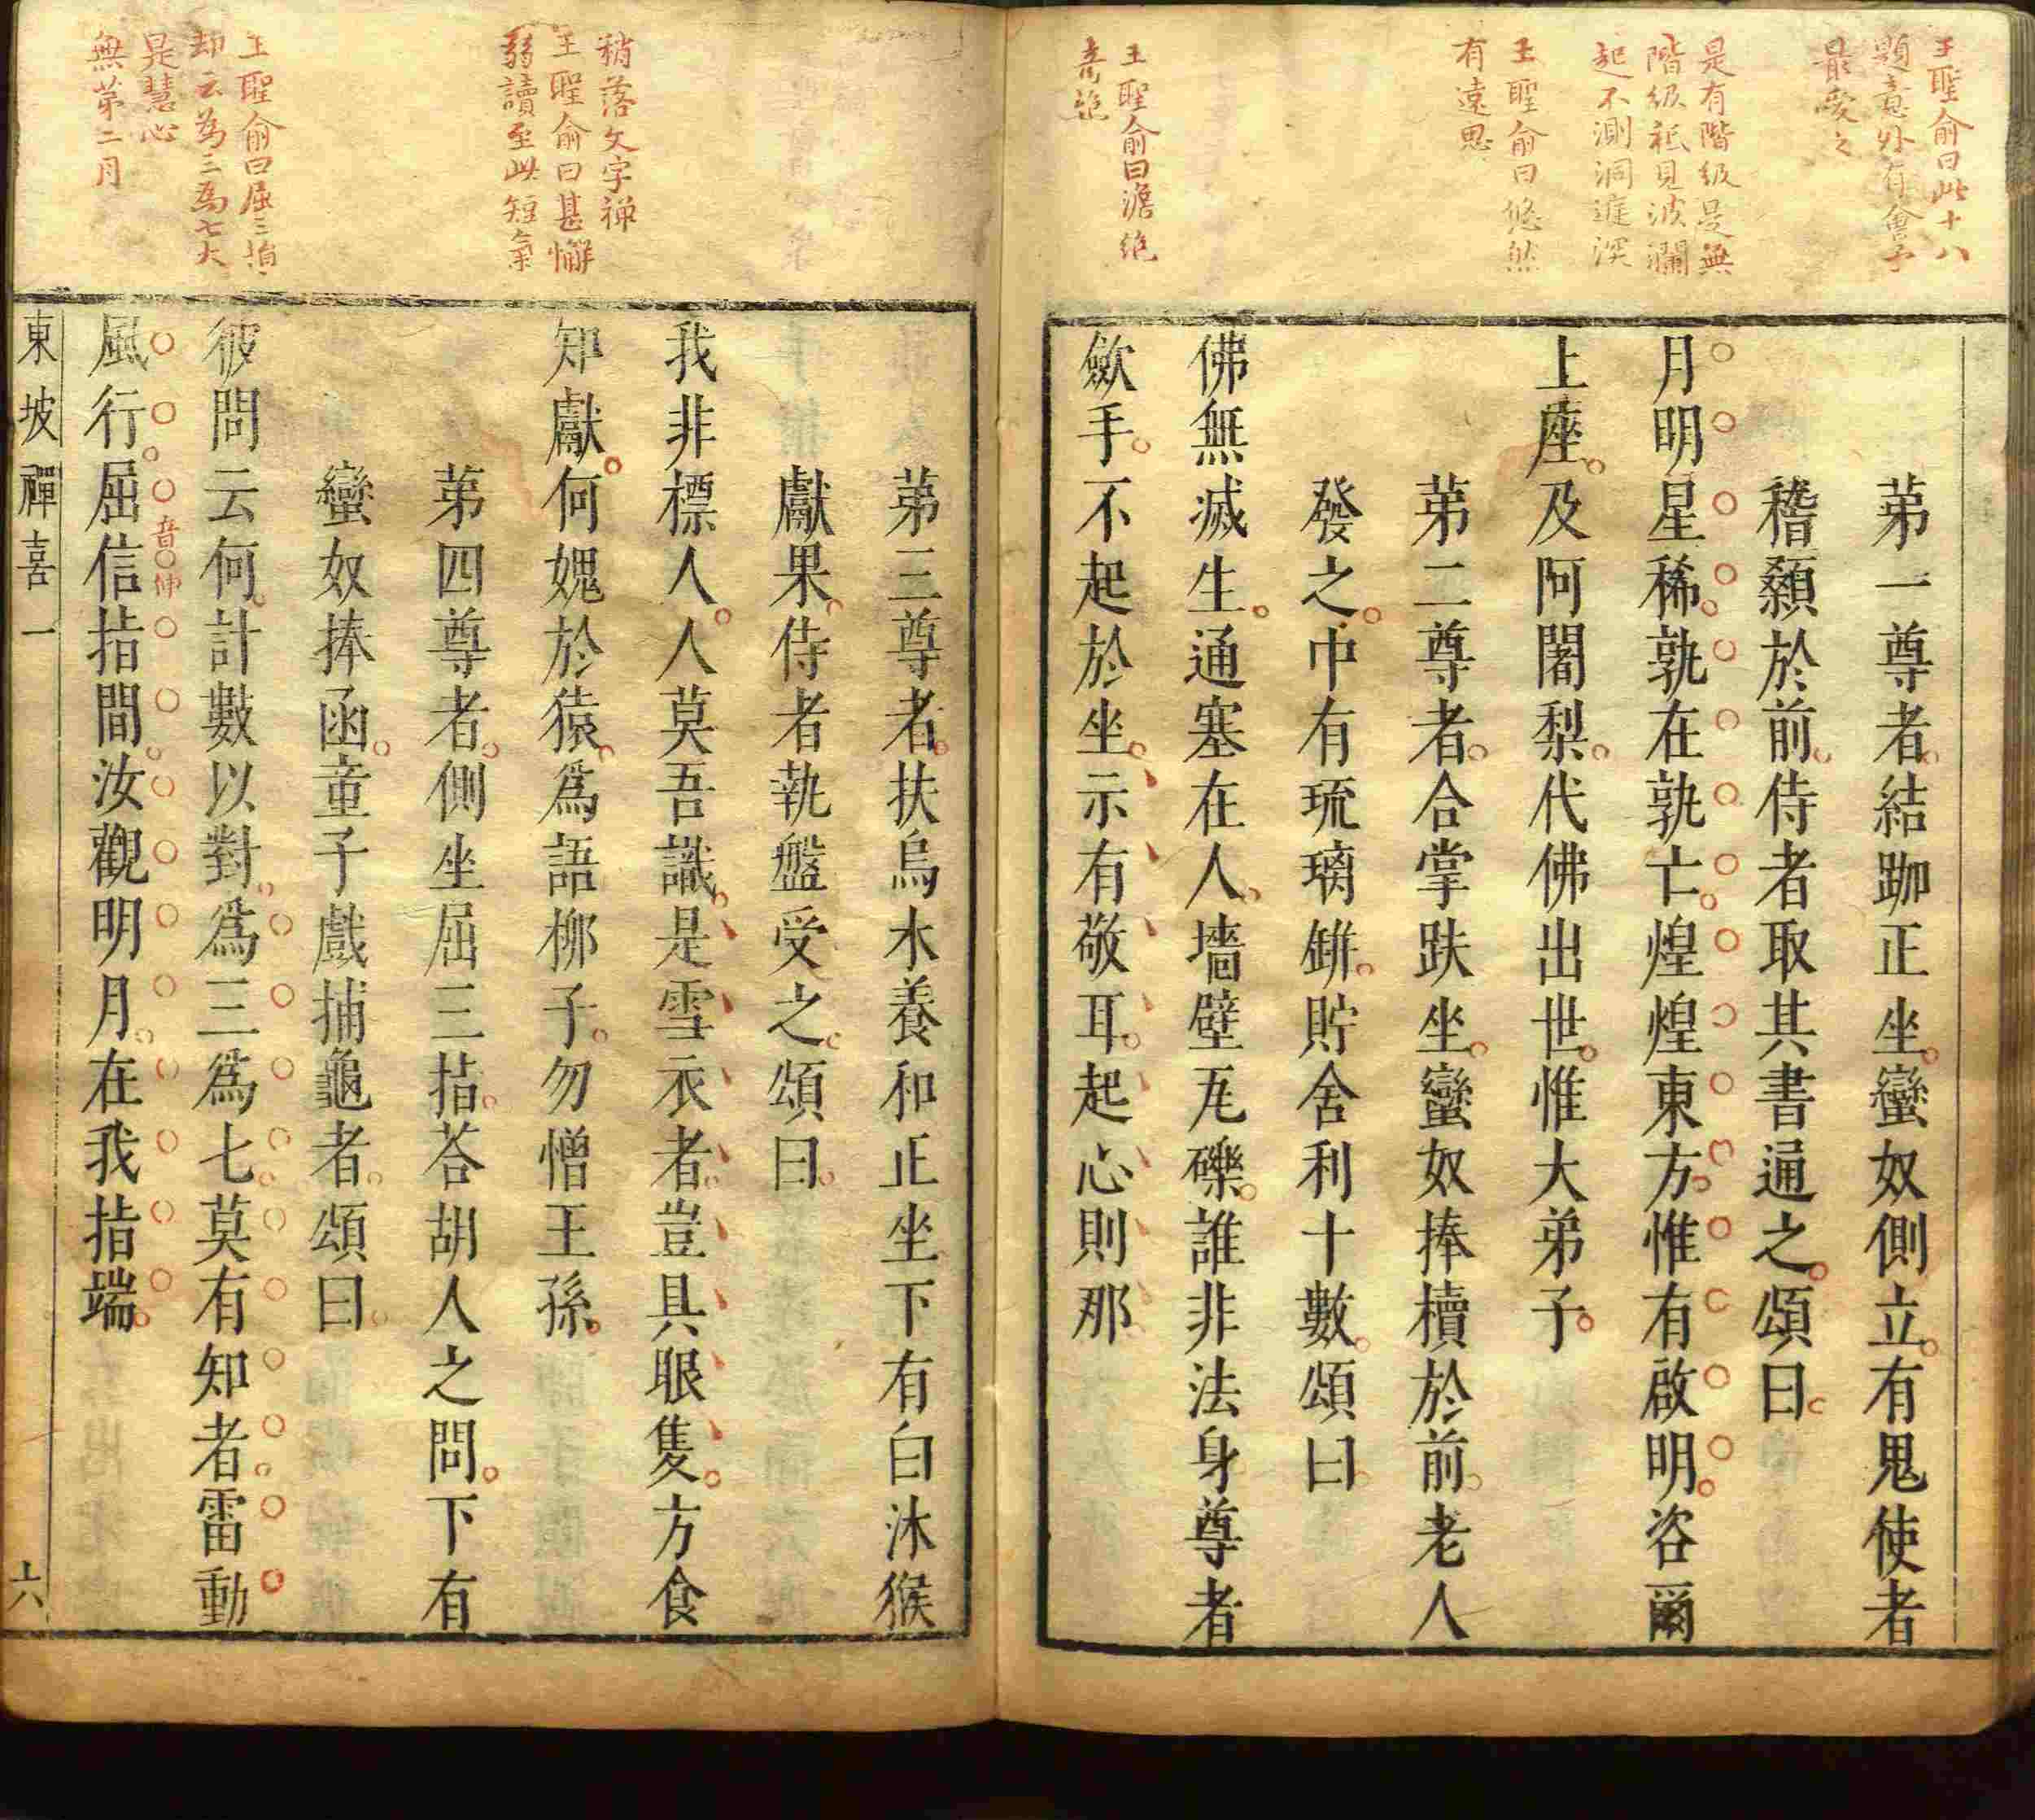 王聖俞曰此十八
題意外有會予
最愛之
是有階級是無
階級祗見波瀾
起不測洞庭深
王聖俞曰悠然
有遠思
王聖俞曰澹絶
高絶
第一尊者結跏正坐蠻奴側立有鬼使者
稽顙於前侍者取其書通之頌曰
月明星稀孰在孰亡煌煌東方惟有啟明咨爾
上座及阿闍梨代佛出世惟大弟子
第二尊者合掌趺坐蠻奴捧櫝於前老人
發之中有琉璃缾貯舍利十數頌曰
佛無滅生通塞在人墻壁瓦礫誰非法身尊者
歛手不起於坐示有敬耳起心則那
稍落文字禪
王聖俞曰甚懈
弱讀至此短氣
王聖俞曰屈三指
却云為三為七大
是慧心
無苐二月
第三尊者扶烏木養和正坐下有白沐猴
獻果侍者執盤受之頌曰
我非標人人莫吾識是雪衣者豈具眼隻方食
知獻何媿於猿為語柳子勿憎王孫
第四尊者側坐屈三指荅胡人之問下有
蠻奴捧函童子戲捕龜者頌曰
彼問云何計數以對為三為七莫有知者雷動
風行屈信指間汝觀明月在我指端
音伸
東坡禪喜一
六